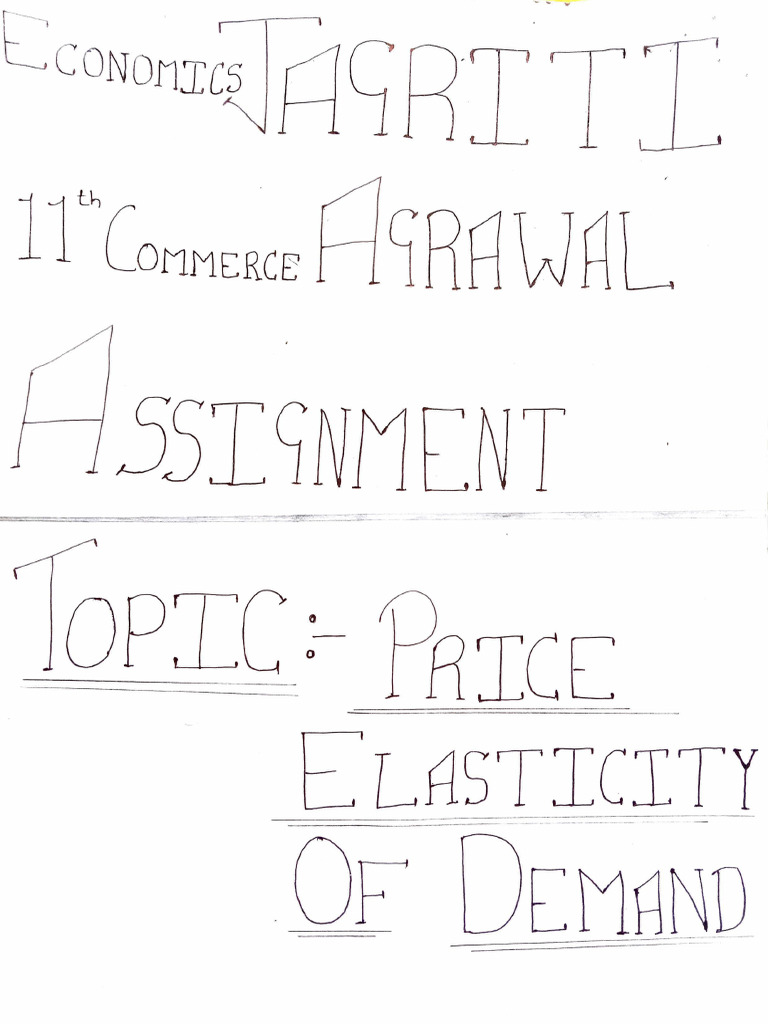 ECONOMICS JAGRITI
11th COMMERCE AGRAWAL
ASSIGNMENT
TOPIC :- PRICE
ELASTICITY
OF DEMAND